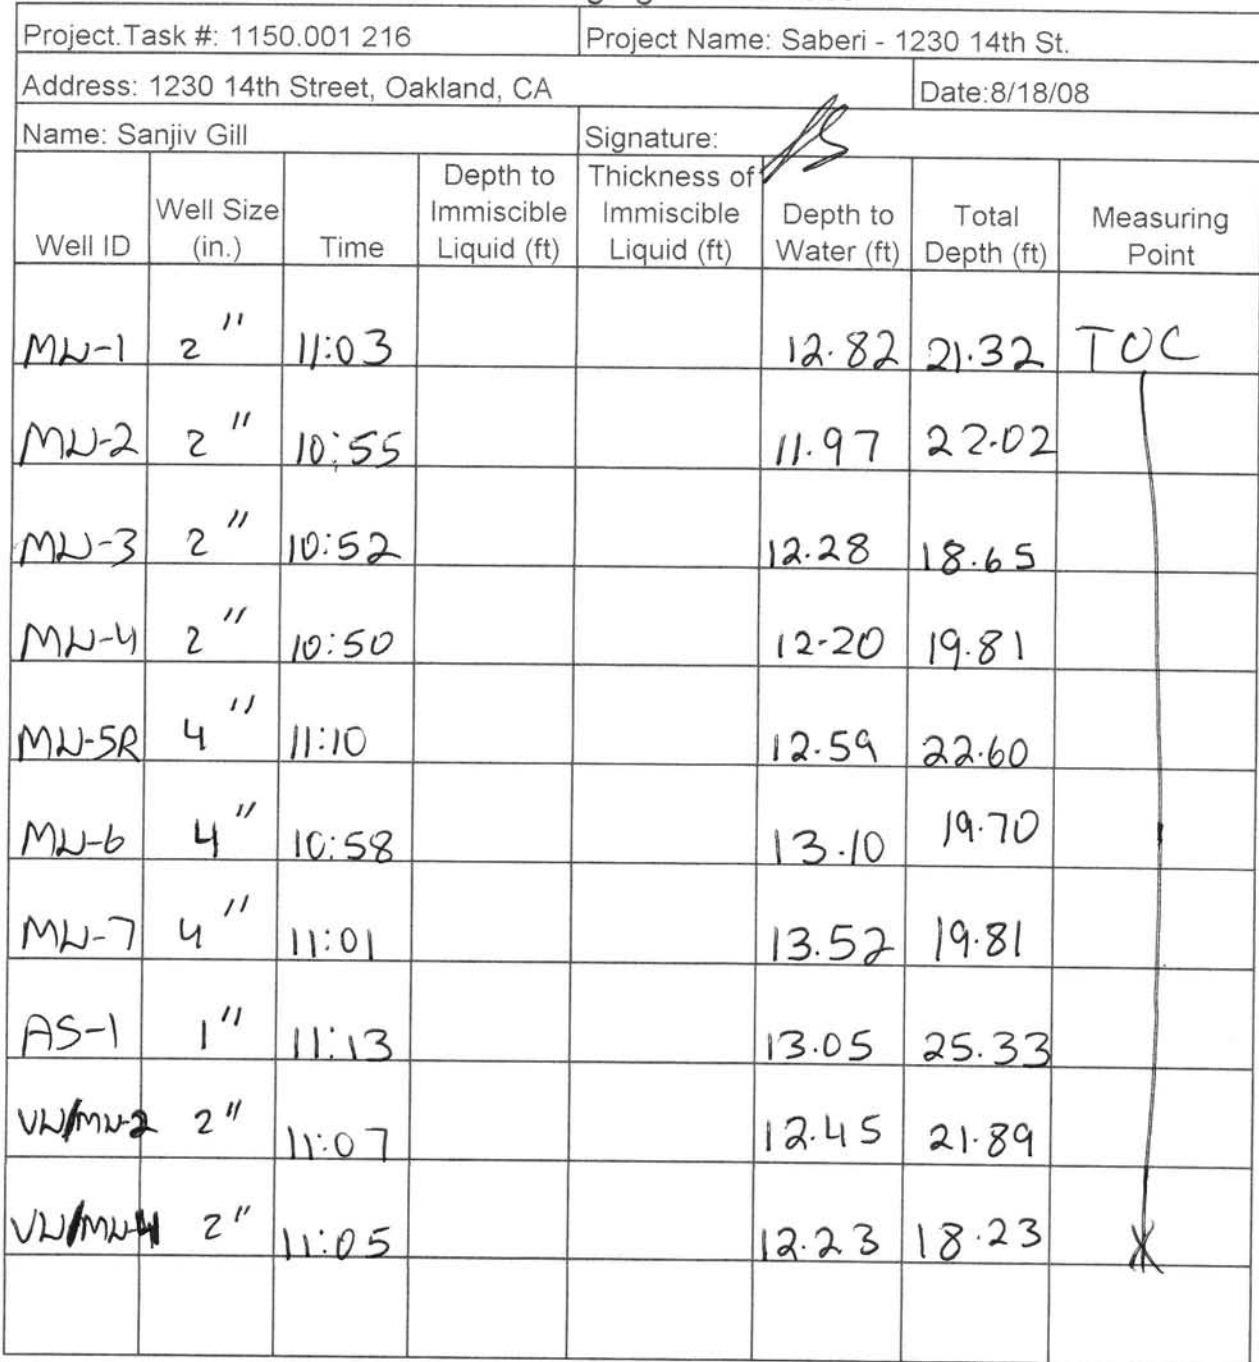 Project.Task #: 1150.001 216 Project Name: Saberi - 1230 14th St.
Address: 1230 14th Street, Oakland, CA Date:8/18/08
Name: Sanjiv Gill Signature:
Well ID Well Size (in.) Time Depth to Immiscible Liquid (ft) Thickness of Immiscible Liquid (ft) Depth to Water (ft) Total Depth (ft) Measuring Point
MW-1 2" 11:03 12.82 21.32 TOC
MW-2 2" 10:55 11.97 22.02
MW-3 2" 10:52 12.28 18.65
MW-4 2" 10:50 12.20 19.81
MW-5R 4" 11:10 12.59 22.60
MW-6 4" 10:58 13.10 19.70
MW-7 4" 11:01 13.52 19.81
AS-1 1" 11:13 13.05 25.33
VW/MW-2 2" 11:07 12.45 21.89
VW/MW-4 2" 11:05 12.23 18.23